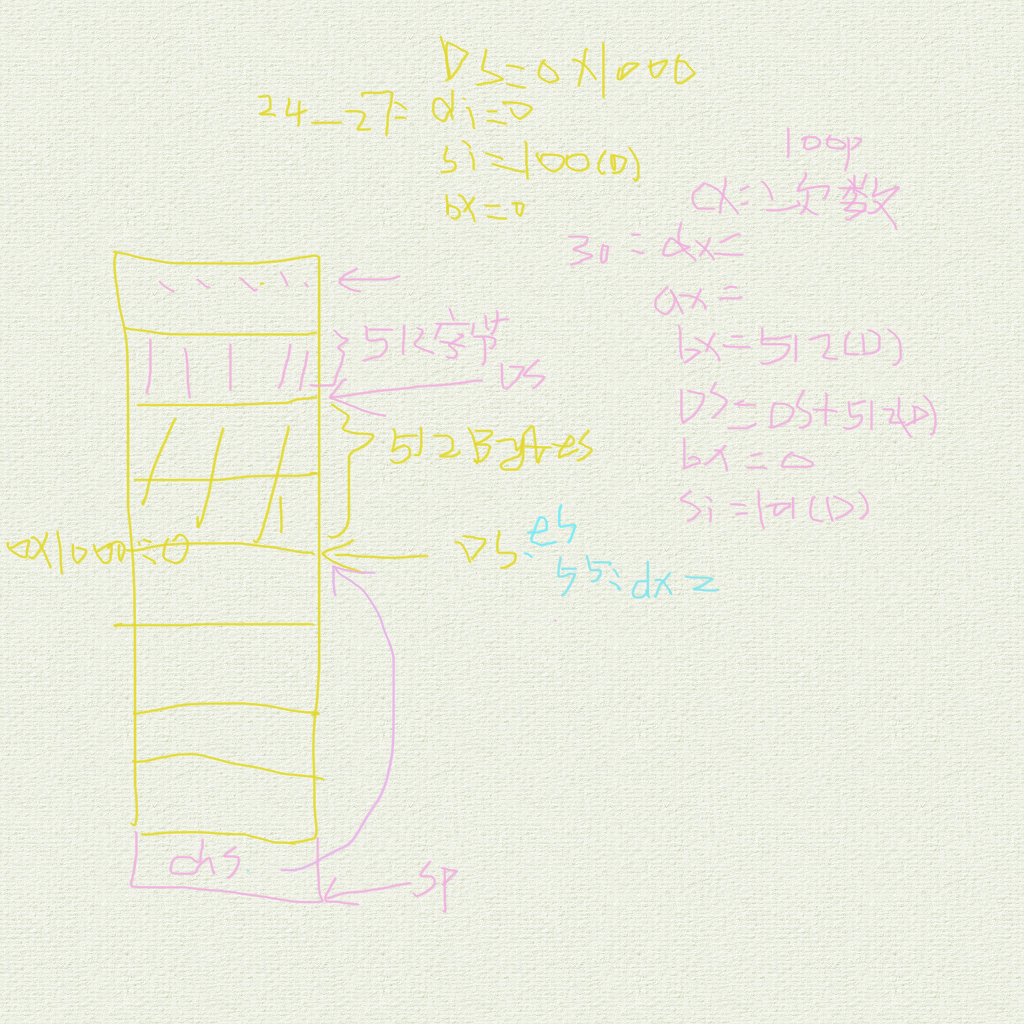 DS=0X1000
24_27: di=0
si=100(D)
bx=0
loop
cx=二次数
30: dx=
ax=
bx=512(D)
DS=DS+512(D)
bx=0
si=101(D)
512字节
DS
512Bytes
0X1000:0
DS:
es
55:dx=
chs
SP